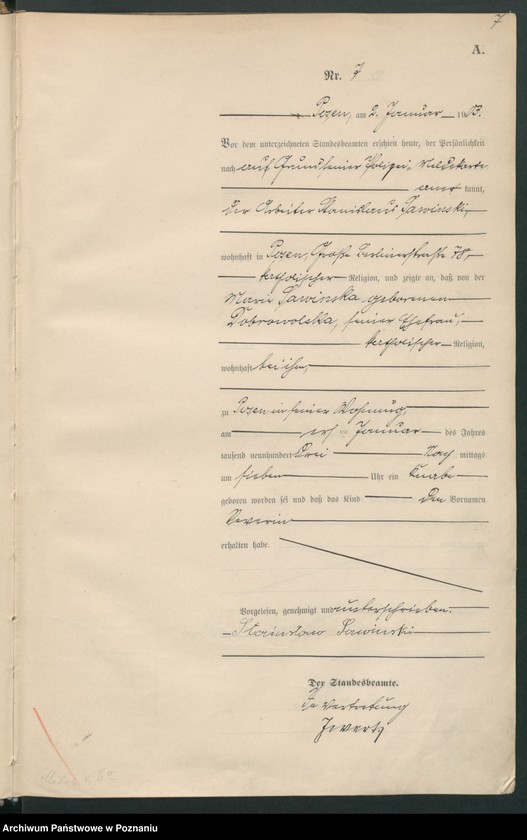 7
A.
Nr. 7
Posen, am 2. Januar 1903.
Vor dem unterzeichneten Standesbeamten erschien heute, der Persönlichkeit
nach auf Grund seiner Polizei-Meldekarte
aner kannt,
der Arbeiter Stanislaus Sawinski,
wohnhaft in Posen, Große Berlinerstraße 78,
katholischer Religion, und zeigte an, daß von der
Marie Sawinska geborenen
Dobrowolska, seiner Ehefrau,
katholischer Religion,
wohnhaft bei ihm,
zu Posen in seiner Wohnung,
am ersten Januar des Jahres
tausend neunhundert Drei Nach mittags
um sieben Uhr ein Knabe
geboren worden sei und daß das Kind den Vornamen
Severin
erhalten habe.
Vorgelesen, genehmigt und unterschrieben.
Stanisław Sawinski
Der Standesbeamte.
In Vertretung
Archiwum Państwowe w Poznaniu